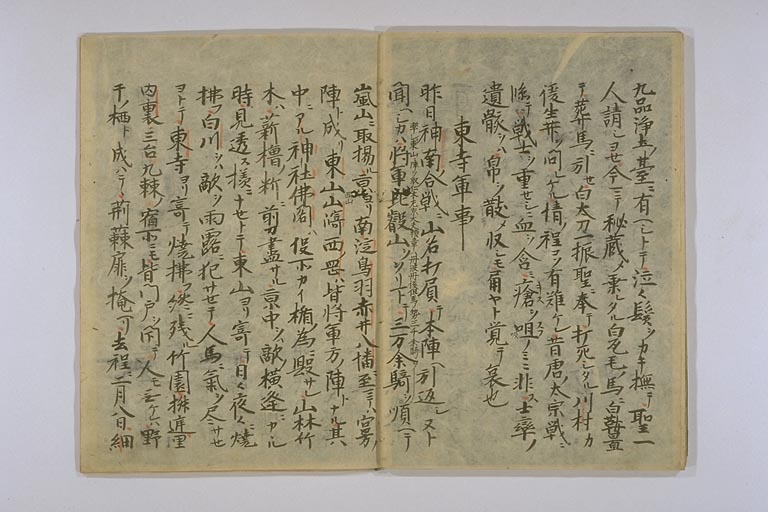 九品浄土ノ䑓ニ有ヘシトテ泣々髪ヲカキ撫テ聖一
人請シヨセ今ニテ秘蔵メ乗ルクル白瓦毛ノ馬ニ白鞍置
テ葬馬ニ引セ白太刀一振聖ニ奉テ打死シタル川村カ
後生菩提ヲ問レケル情ノ程コソ有難ケレ昔唐太宗戦ニ
臨テ戦士ヲ重セシニ血ヲ含ミ瘡ヲ咀ノミニ非ス士率ノ
遺骸ヲハ帛ヲ散メ収シモ角ヤト覚テ哀也
東寺軍事
昨日神南合戦ニ山名打負テ本陣ヘ引返シヌト
聞ヘシカハ将軍比叡山ヲヲリトテ三万余騎ヲ順ヘテ
嵐山ニ取揚ル京ヨリ南淀鳥羽赤井八幡ニ至マテハ宮方ノ
陣ト成リ東山山﨑西岡ハ皆将軍方ノ陣トナル其
中ニアル神社佛閣ハ役所ノカイ楯ノ為ニ毀タレ山林竹
木ハ薪櫓ノ料ニ剪盡サル京中ヲハ敵横逢ニカヽル
時見透ス様ニナセトテ東山ヨリ寄テ日々夜々ニ焼
拂フ白川ヲハ敵ヲ雨露ニ犯サセテ人馬ニ氣ヲ尽サセ
ヨトテ東寺ヨリ寄テ焼拂フ残ル竹園椒庭里
内裏三台九棘ノ宿所ニモ皆門戸ヲ閇テ人モ无ケレハ野
干ノ栖ト成ハテヽ荊蕀扉ヲ掩ヘリ去程ニ二月八日細